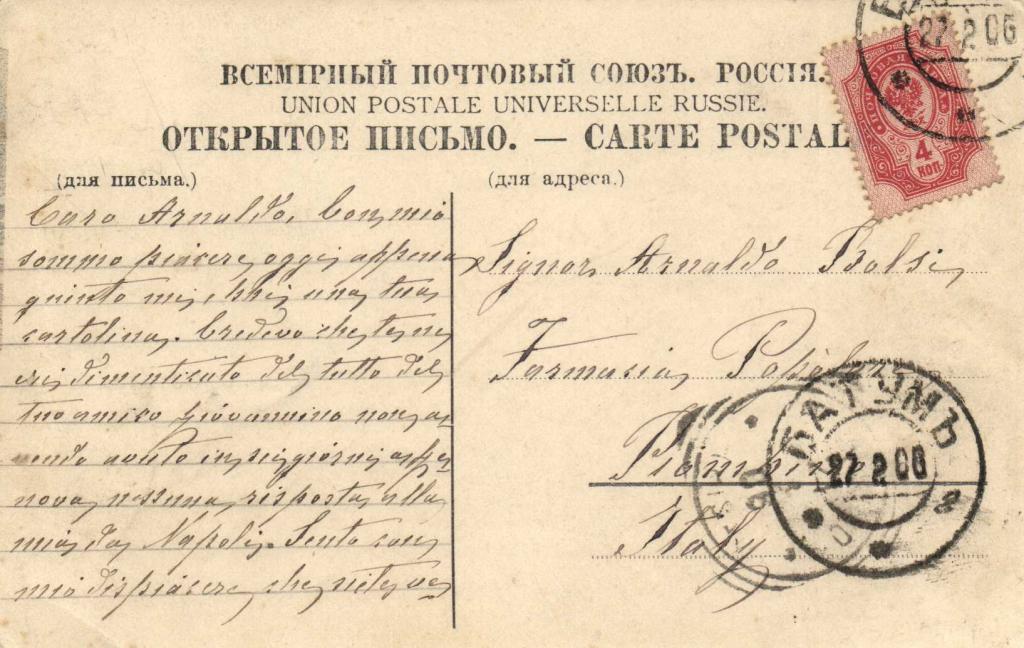 ВСЕМІРНЫЙ ПОЧТОВЫЙ СОЮЗЪ. РОССІЯ.
UNION POSTALE UNIVERSELLE RUSSIE.
ОТКРЫТОЕ ПИСЬМО. — CARTE POSTAL
(для письма.)
(для адреса.)
27 2 06
4
КОП.
Caro Arnaldo, Con mio
sommo piacere oggi appena
giunto mi ebbi una tua
cartolina. Credevo che te ne
eri dimenticato del tutto del
tuo amico Giovannino non a
vendo avuto in sei giorni appe
nova nessuna risposta alla
mia da Napoli. Sento con
mio dispiacere che vite va
Signor Arnaldo Bolsi
Farmacia
Piombino
Italy
БАТУМЪ
27 2 06